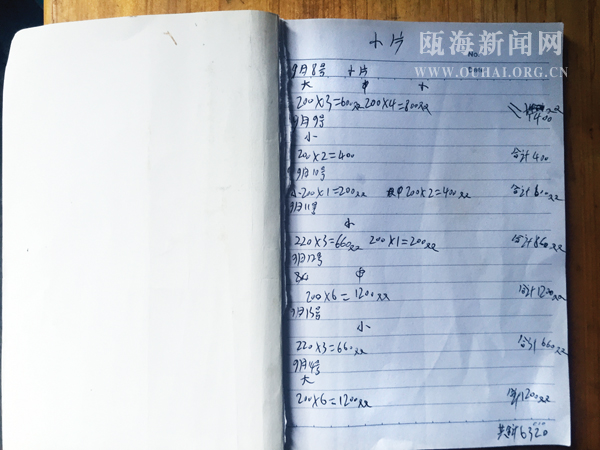 卡片
瓯海新闻网
WWW.OUHAI.ORG.CN
No.
9月8号 卡片
大 中 小
200×3=600双 200×4=800双 1400
9月9号
小
200×2=400 合计400
9月10号
小200×1=200双 中200×2=400双 合计600双
9月11号
小
220×3=660双 200×1=200双 合计860双
9月12号
中
200×6=1200双 合计1200双
9月13号
小
220×3=660双 合计660双
9月14号
大
200×6=1200双 合计1200双
共计6320